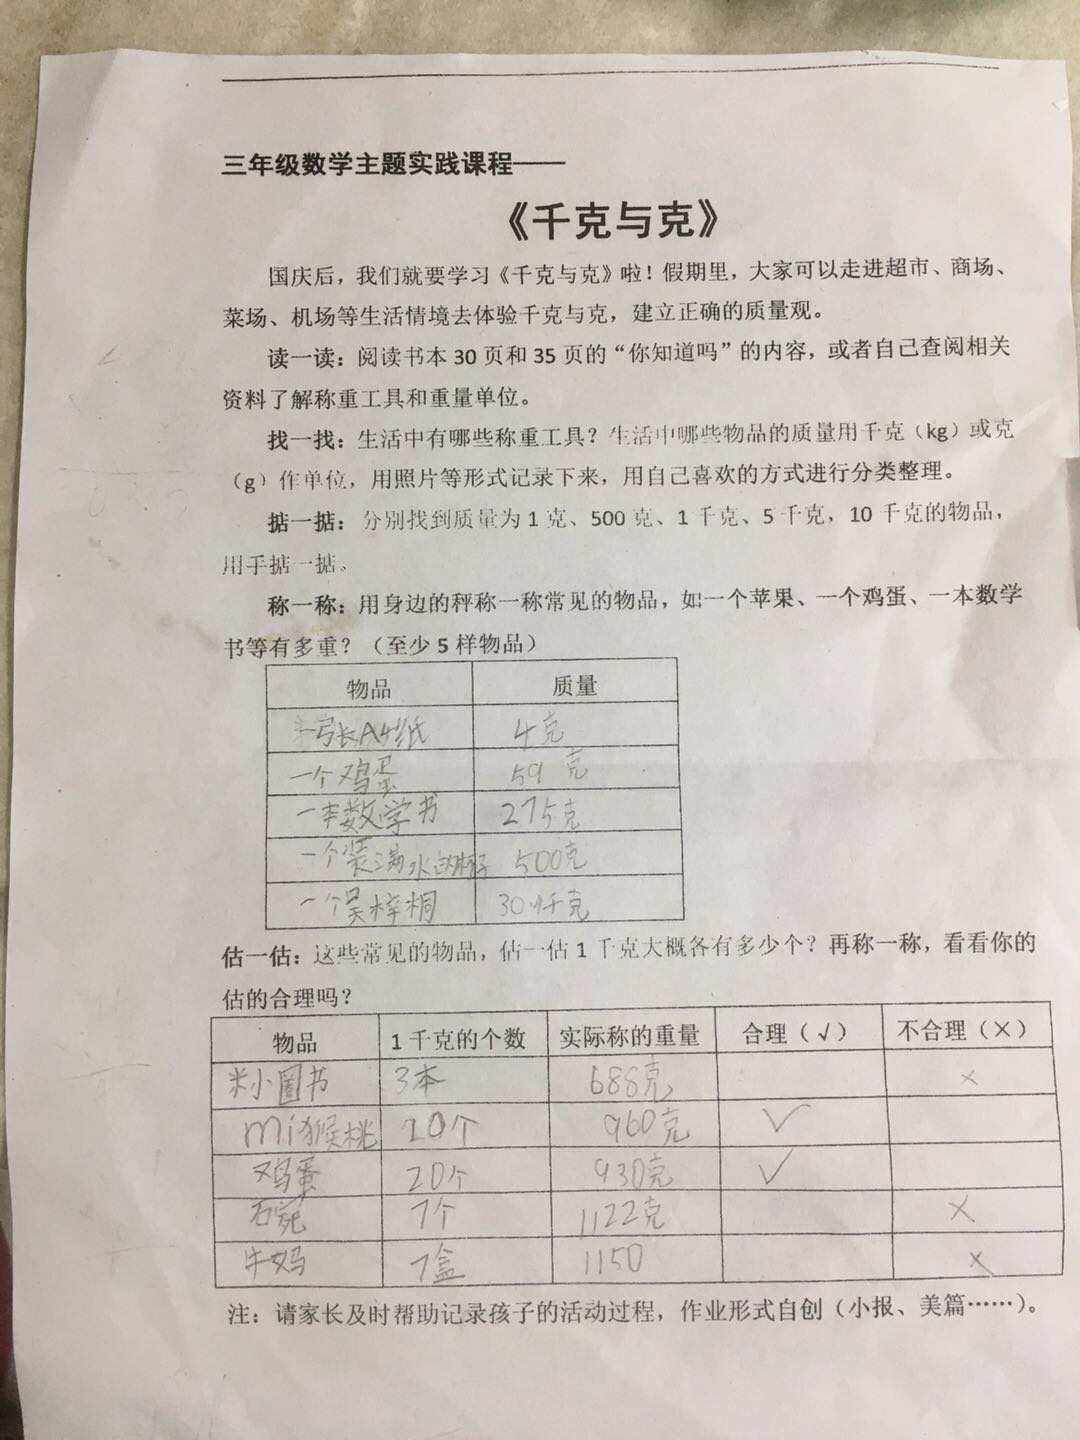 三年级数学主题实践课程——
《千克与克》
国庆后，我们就要学习《千克与克》啦！假期里，大家可以走进超市、商场、
菜场、机场等生活情境去体验千克与克，建立正确的质量观。
读一读：阅读书本 30 页和 35 页的“你知道吗”的内容，或者自己查阅相关
资料了解称重工具和重量单位。
找一找：生活中有哪些称重工具？生活中哪些物品的质量用千克（kg）或克
（g）作单位，用照片等形式记录下来，用自己喜欢的方式进行分类整理。
掂一掂：分别找到质量为 1 克、500 克、1 千克、5 千克，10 千克的物品，
用手掂一掂。
称一称：用身边的秤称一称常见的物品，如一个苹果、一个鸡蛋、一本数学
书等有多重？（至少 5 样物品）
物品 质量
张A4纸 4克
一个鸡蛋 59克
一本数学书 275克
一个装满水的杯子 500克
一个吴梓桐 30千克
估一估：这些常见的物品，估一估 1 千克大概各有多少个？再称一称，看看你的
估的合理吗？
物品 1 千克的个数 实际称的重量 合理（√） 不合理（×）
米小圈书 3本 688克 ×
mi猴桃 10个 960克 √
鸡蛋 20个 930克 √
石 7个 1122克 ×
牛奶 7盒 1150 ×
注：请家长及时帮助记录孩子的活动过程，作业形式自创（小报、美篇……）。